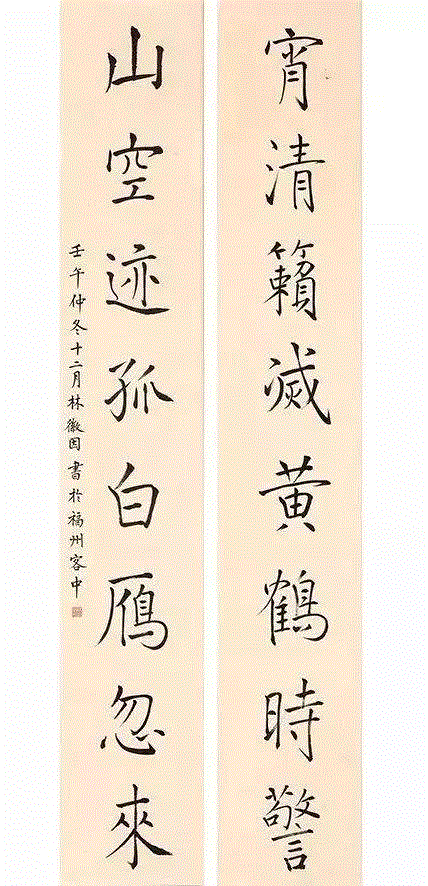 宵清籟滅黄鶴時警
山空迹孤白鴈忽來
壬午仲冬十二月林徽因書於福州客中